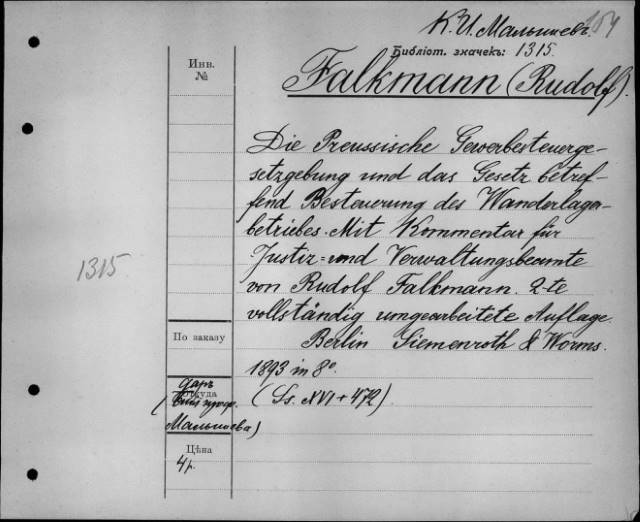 К. И. Малышевъ. 154
Библіот. значекъ: 1315.
Инв.
№
Falkmann (Rudolf).
Die Preussische Gewerbesteuerge-
setzgebung und das Gesetz betref-
fend Besteuerung des Wanderlager-
betriebes. Mit Kommentar für
Justiz= und Verwaltungsbeamte
von Rudolf Falkmann. 2-te
vollständig umgearbeitete Auflage.
Berlin Siemenroth & Worms.
1893 in 8°.
(Ss. XVI + 472)
1315
По заказу
даръ
Откуда
Малышева)
Цѣна
4 р.